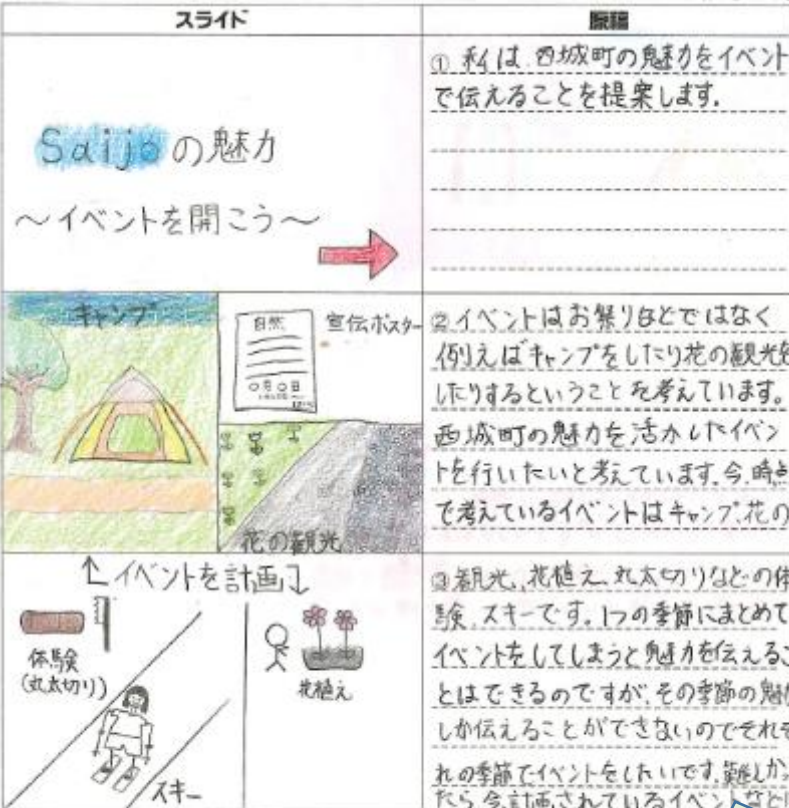 スライド
原稿
Saijoの魅力
～イベントを開こう～
① 私は、西城町の魅力をイベント
で伝えることを提案します。
キャンプ
自然
〇月〇日
宣伝ポスター
花の観光
② イベントはお祭りなどではなく
例えばキャンプをしたり花の観光を
したりするということを考えています。
西城町の魅力を活かしたイベン
トを行いたいと考えています。今、時点
で考えているイベントはキャンプ、花の
↑イベントを計画↓
体験
(丸太切り)
スキー
花植え
③ 観光、花植え、丸太切りなどの体
験、スキーです。1つの季節にまとめて
イベントをしてしまうと魅力を伝えるこ
とはできるのですが、その季節の魅力
しか伝えることができないのでそれぞ
れの季節でイベントをしたいです。難しかっ
たら、今計画されているイベント